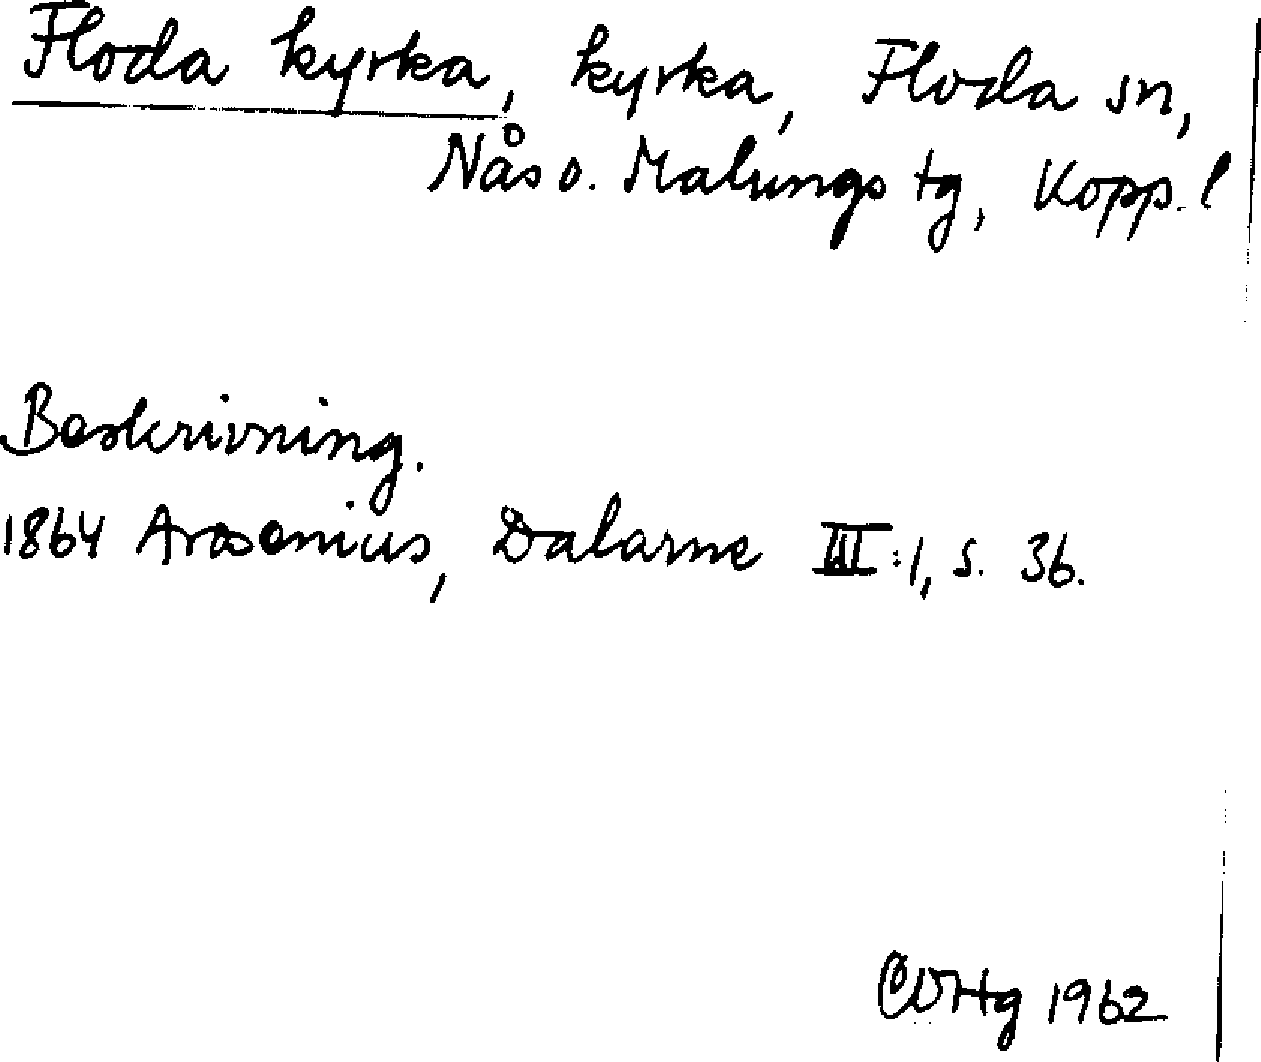 Floda kyrka, kyrka, Floda sn,
Nås o. Malungs tg, Kopp. l
Beskrivning.
1864 Arosenius, Dalarne III:1, s. 36.
CDHg 1962